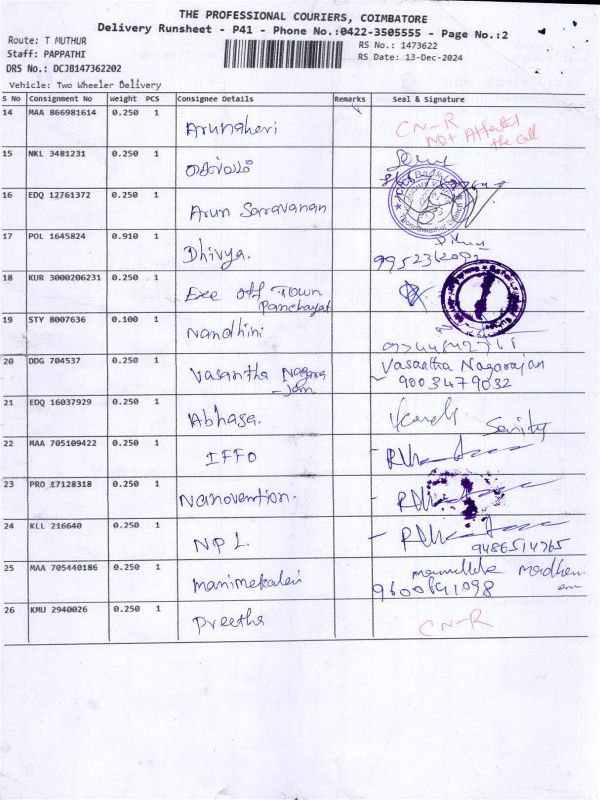 THE PROFESSIONAL COURIERS, COIMBATORE
Delivery Runsheet - P41 - Phone No.:0422-3505555 - Page No.:2
Route: T MUTHUR
RS No.: 1473622
Staff: PAPPATHI
RS Date: 13-Dec-2024
DRS No.: DCJB147362202
Vehicle: Two Wheeler Delivery
S No Consignment No Weight PCS Consignee Details Remarks Seal & Signature
14 MAA 866981614 0.250 1 CN-R
Not Attended the call
15 NKL 3481231 0.250 1
16 EDQ 12761372 0.250 1 Arun Saravanan
17 POL 1645824 0.910 1 Dhivya.
18 KUR 3000206231 0.250 1 Exe off Town
Panchayat
19 STY 8007636 0.100 1 Nandhini
20 DDG 704537 0.250 1 Vasantha Nagara Vasantha Nagarajan
-jan 9003479032
21 EDQ 16037929 0.250 1 Abhasa.
22 MAA 705109422 0.250 1 IFFO
23 PRO 17128318 0.250 1 Nanovention.
24 KLL 216640 0.250 1 NPL.
9486514765
25 MAA 705440186 0.250 1 Manimekalai
26 KMU 2940026 0.250 1 Preetha CN-R